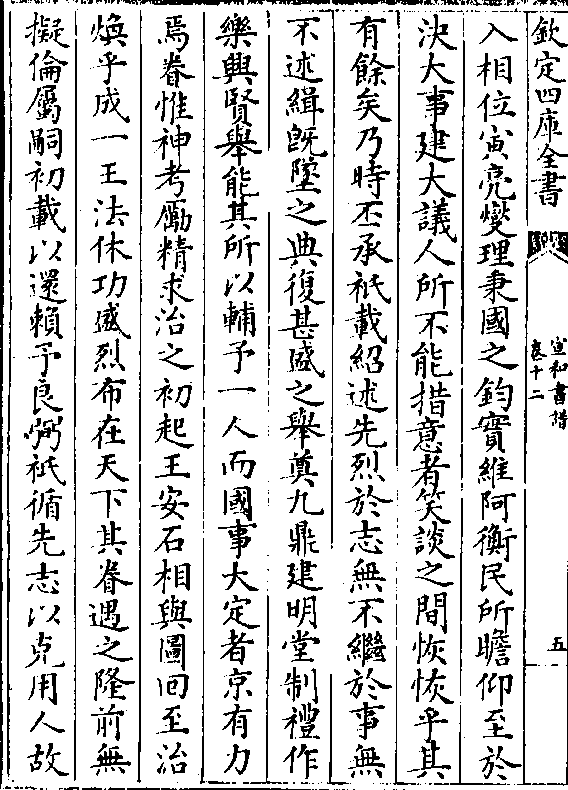 欽定四庫全書
宣和書譜
卷十二
五
入相位寅亮燮理秉國之鈞實維阿衡民所瞻仰至於
決大事建大議人所不能措意者笑談之間恢恢乎其
有餘矣乃時丕承祇載紹述先烈於志無不繼於事無
不述緝既墜之典復甚盛之舉奠九鼎建明堂制禮作
樂興賢舉能其所以輔予一人而國事大定者京有力
焉眷惟神考勵精求治之初起王安石相與圖回至治
煥乎成一王法休功盛烈布在天下其眷遇之隆前無
擬倫屬嗣初載以還賴予良弼祇循先志以克用人故